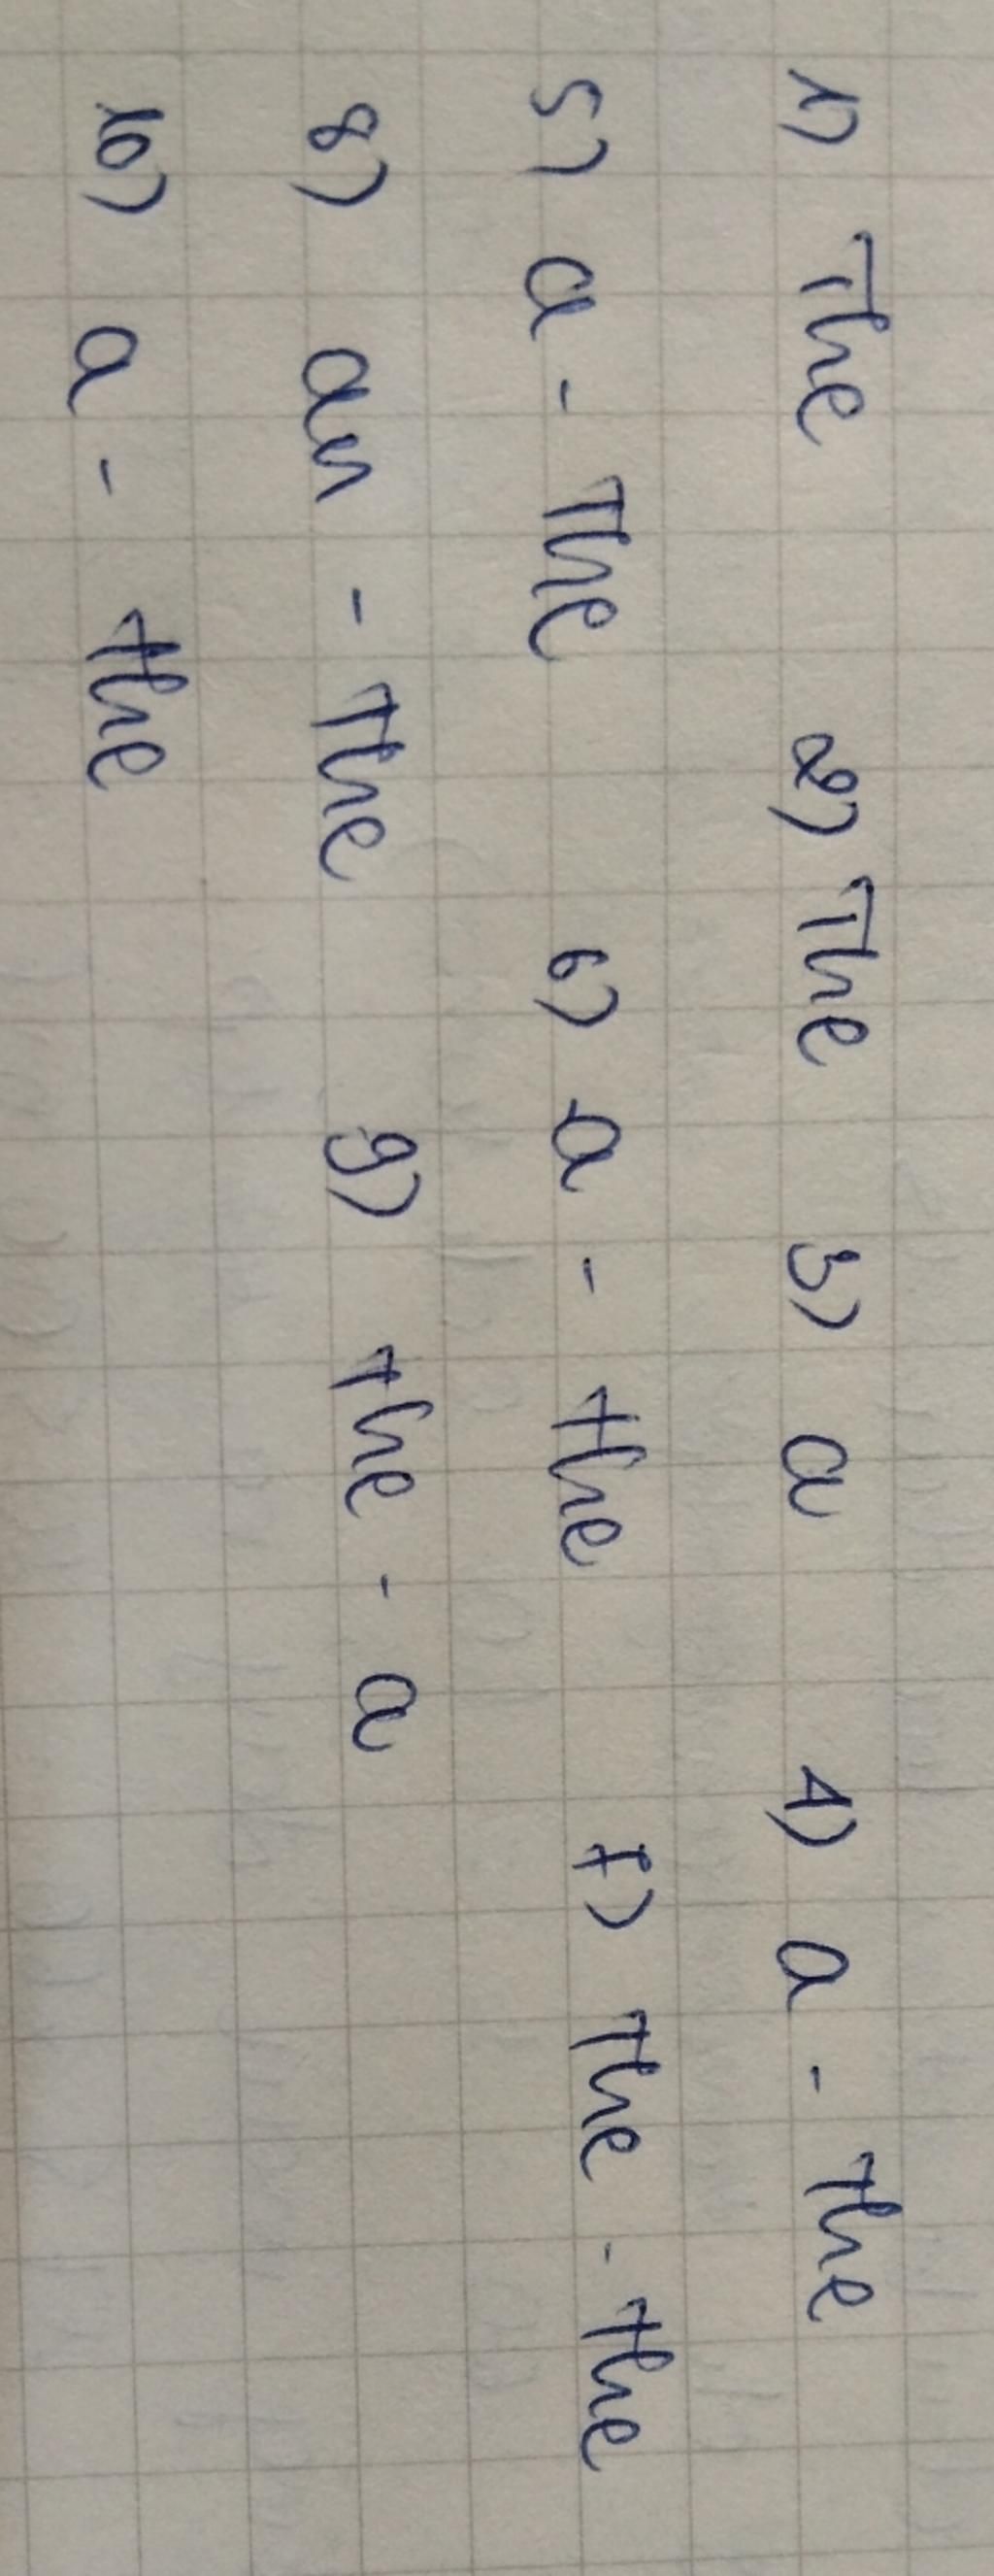 1) The 2) The 3) a 4) a - the
5) a - The 6) a - the 7) the - the
8) an - the 9) the - a
10) a - the